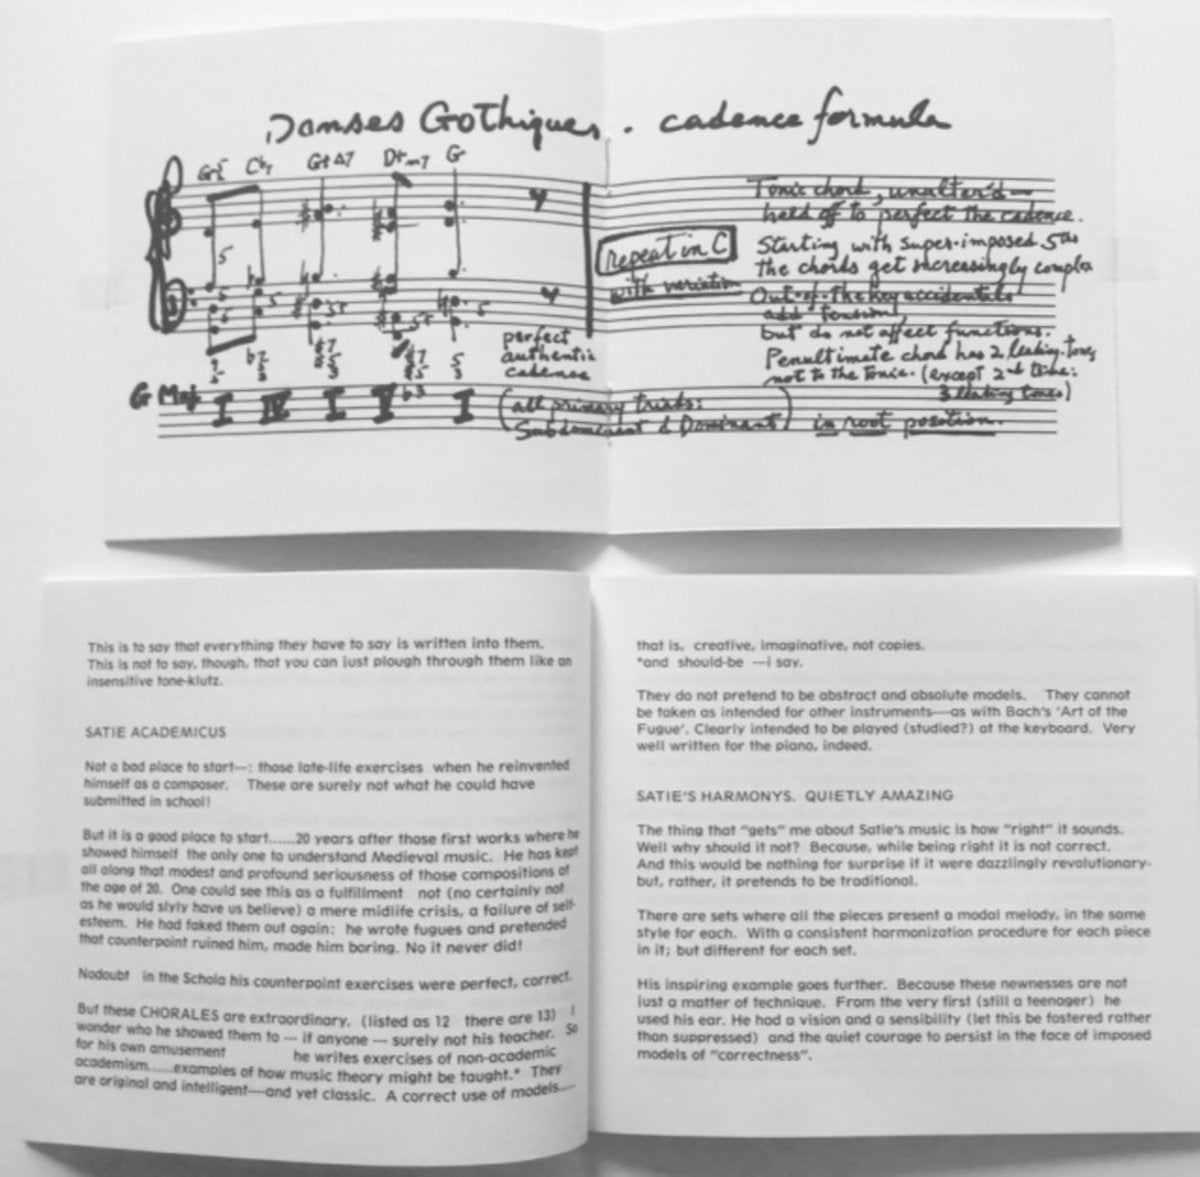 Danses Gothiques . cadence formula
G5 C♭7 G+Δ7 D+m7 G
Tonic chord, unalter'd —
held off to perfect the cadence.
repeat in C
with variation
Starting with super-imposed 5ths
the chords get increasingly complex
Out-of-the-key accidentals
add tension,
but do not affect functions.
perfect
authentic
cadence
Penultimate chord has 2 leading-tones
not to the Tonic. (except 2nd time:
3 leading tones)
G Maj I IV I V I (all primary triads:
Subdominant & Dominant) in root position.
This is to say that everything they have to say is written into them.
This is not to say, though, that you can just plough through them like an
insensitive tone-klutz.
SATIE ACADEMICUS
Not a bad place to start—: those late-life exercises when he reinvented
himself as a composer. These are surely not what he could have
submitted in school!
But it is a good place to start......20 years after those first works where he
showed himself the only one to understand Medieval music. He has kept
all along that modest and profound seriousness of those compositions of
the age of 20. One could see this as a fulfillment not (no certainly not
as he would slyly have us believe) a mere midlife crisis, a failure of self-
esteem. He had faked them out again: he wrote fugues and pretended
that counterpoint ruined him, made him boring. No it never did!
Nodoubt in the Schola his counterpoint exercises were perfect, correct.
But these CHORALES are extraordinary. (listed as 12 there are 13) I
wonder who he showed them to --- if anyone --- surely not his teacher. So
for his own amusement he writes exercises of non-academic
academism......examples of how music theory might be taught.* They
are original and intelligent—and yet classic. A correct use of models----
that is, creative, imaginative, not copies.
*and should-be ---i say.
They do not pretend to be abstract and absolute models. They cannot
be taken as intended for other instruments—as with Bach's 'Art of the
Fugue'. Clearly intended to be played (studied?) at the keyboard. Very
well written for the piano, indeed.
SATIE'S HARMONYS. QUIETLY AMAZING
The thing that "gets" me about Satie's music is how "right" it sounds.
Well why should it not? Because, while being right it is not correct.
And this would be nothing for surprise if it were dazzlingly revolutionary-
but, rather, it pretends to be traditional.
There are sets where all the pieces present a modal melody, in the same
style for each. With a consistent harmonization procedure for each piece
in it; but different for each set.
His inspiring example goes further. Because these newnesses are not
just a matter of technique. From the very first (still a teenager) he
used his ear. He had a vision and a sensibility (let this be fostered rather
than suppressed) and the quiet courage to persist in the face of imposed
models of "correctness".